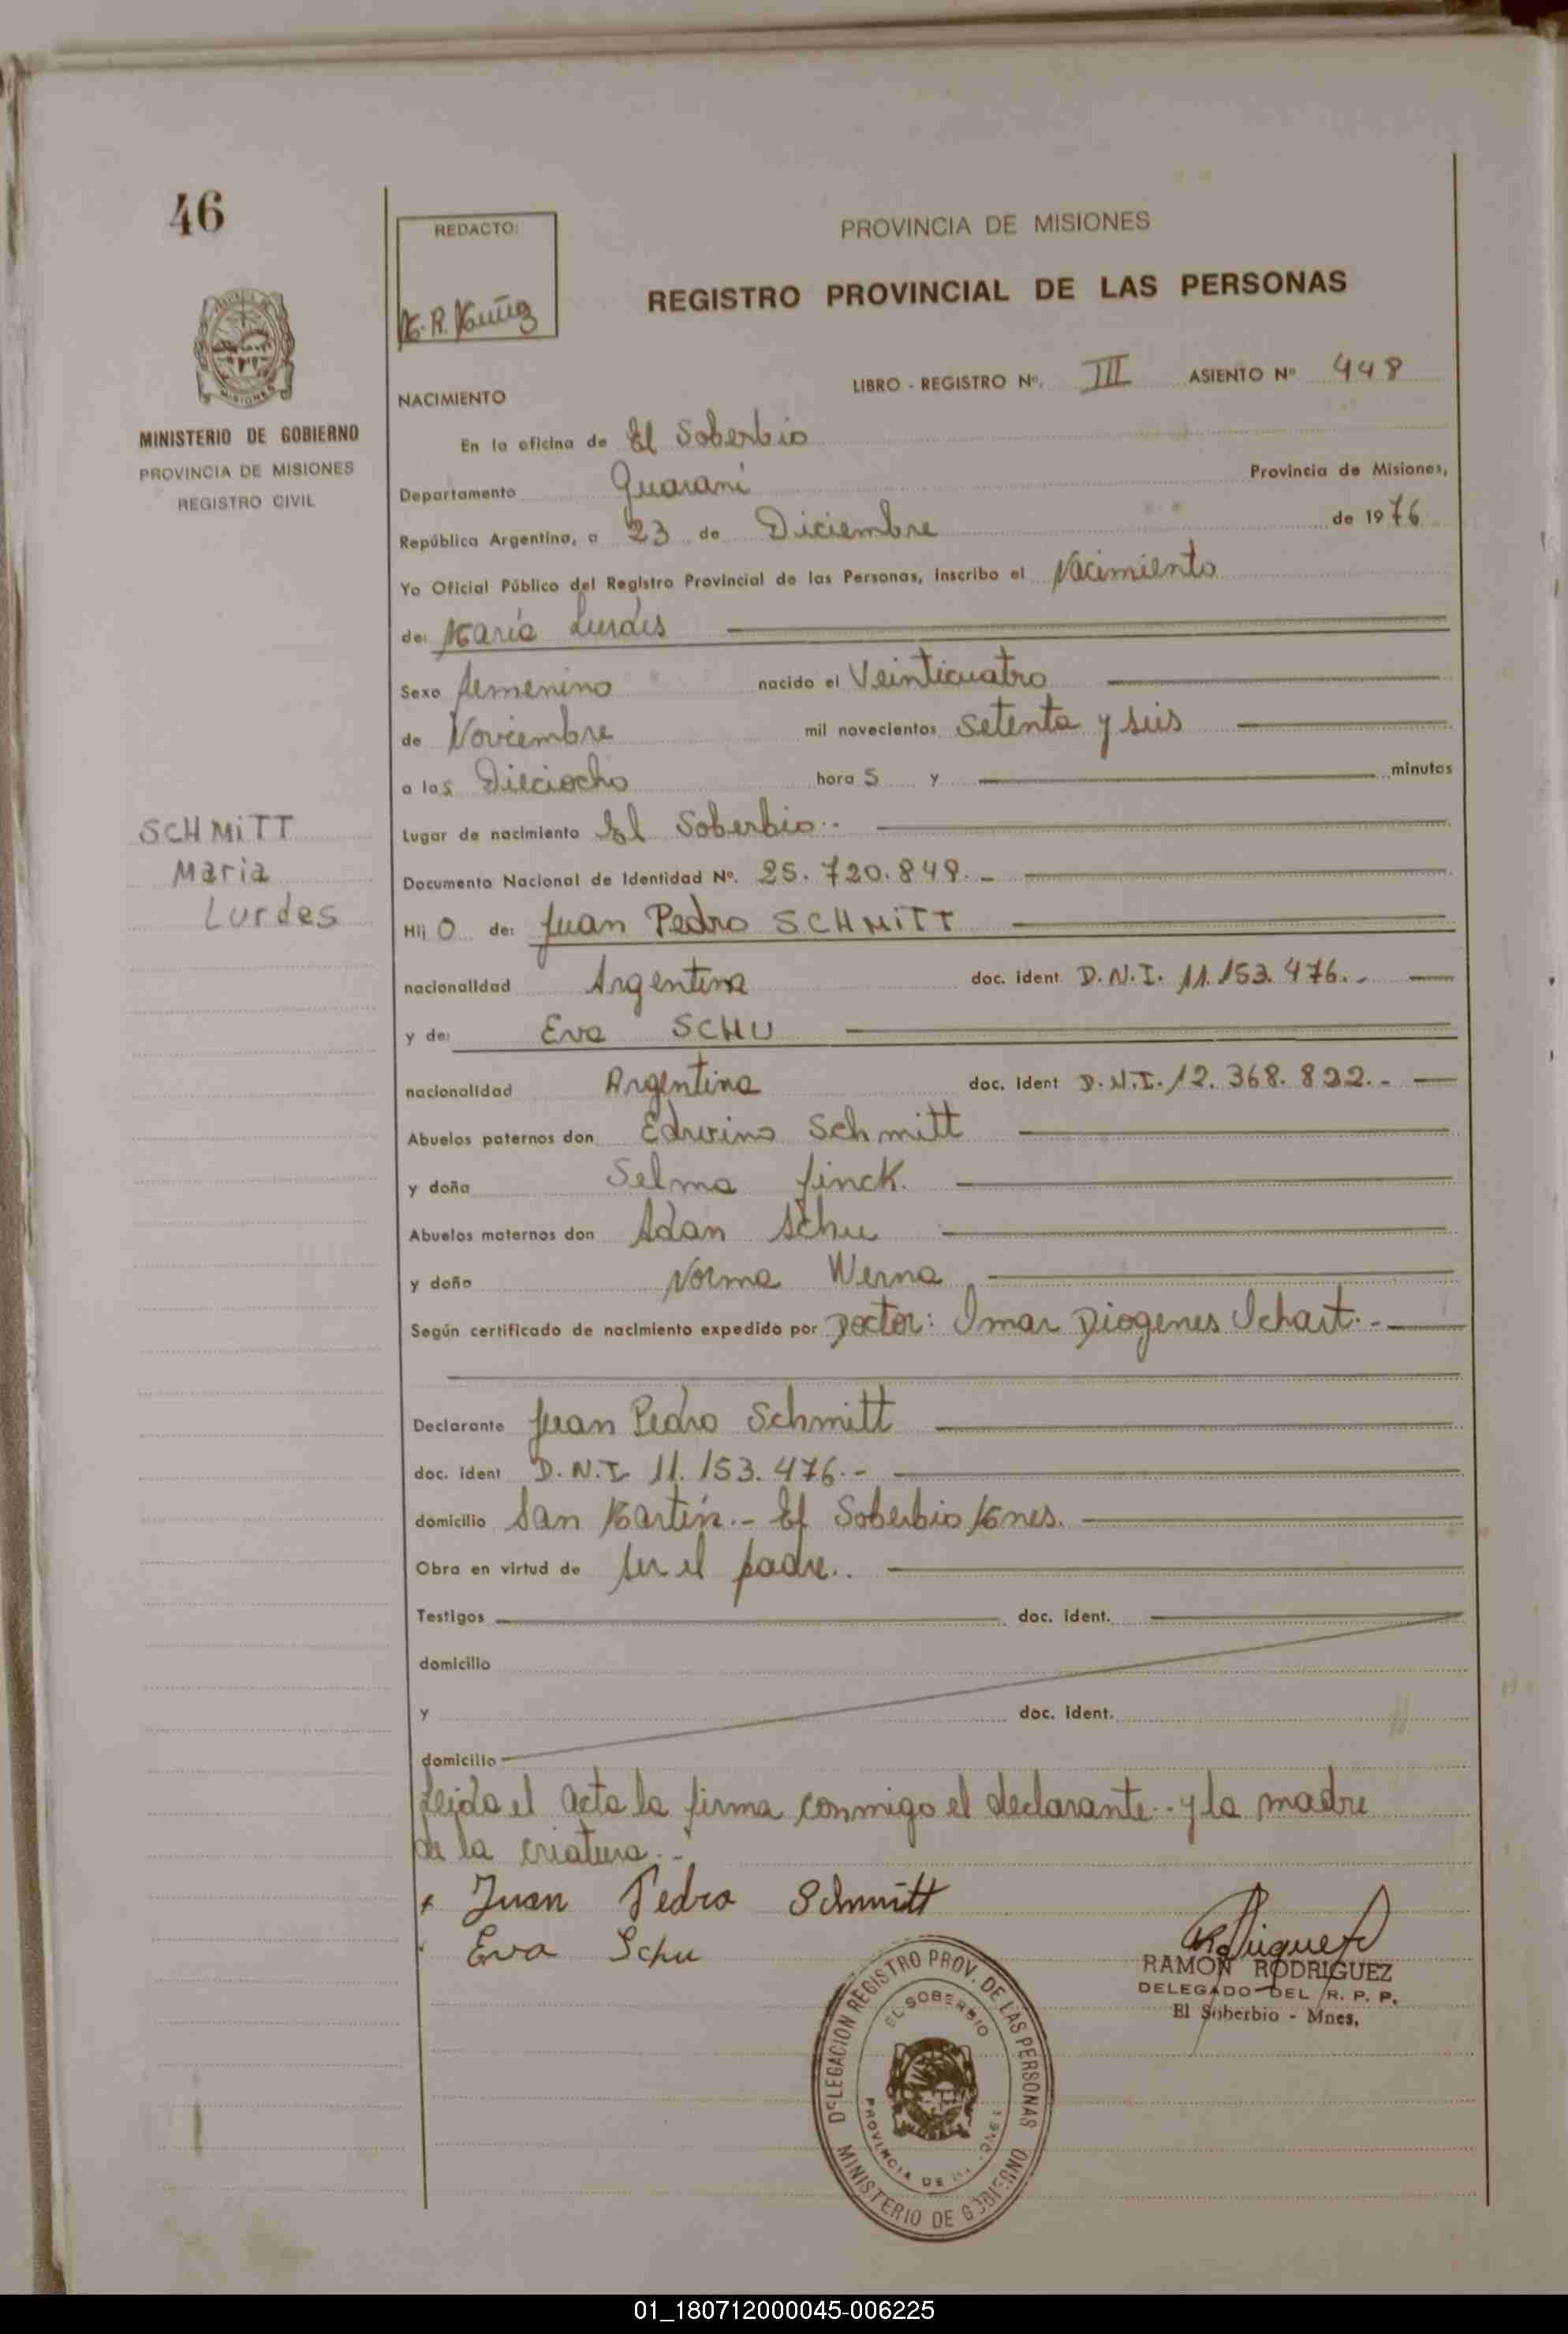 46
REDACTO:
PROVINCIA DE MISIONES
REGISTRO PROVINCIAL DE LAS PERSONAS
LIBRO - REGISTRO Nº. III ASIENTO Nº 448
NACIMIENTO
MINISTERIO DE GOBIERNO
PROVINCIA DE MISIONES
REGISTRO CIVIL
En la oficina de El Soberbio
Departamento Guaraní Provincia de Misiones,
República Argentina, a 23 de Diciembre de 1976
Yo Oficial Público del Registro Provincial de las Personas, inscribo el Nacimiento
de: María Lurdes
Sexo femenino nacido el Veinticuatro
de Noviembre mil novecientos setenta y seis
a las Dieciocho hora s y minutos
Lugar de nacimiento El Soberbio.-
SCHMiTT
Maria
Lurdes
Documento Nacional de Identidad Nº. 25.720.849.-
Hij o de: Juan Pedro SCHMiTT
nacionalidad Argentina doc. ident D.N.I. 11.153.476.-
y de: Eva SCHU
nacionalidad Argentina doc. ident D.N.I. 12.368.822.-
Abuelos paternos don Edwino Schmitt
y doña Selma finck.
Abuelos maternos don Adan Schu
y doña Norma Werna
Según certificado de nacimiento expedido por Doctor: Omar Diogenes Ichart.-
Declarante Juan Pedro Schmitt
doc. ident D.N.I. 11.153.476.-
domicilio San Martín.- El Soberbio Mnes.
Obra en virtud de ser el padre..
Testigos doc. ident.
domicilio
y doc. ident.
domicilio
Leida el acta la firma conmigo el declarante.- y la madre
de la criatura.-
Juan Pedro Schmitt
Eva Schu
RAMON RODRIGUEZ
DELEGADO DEL R. P. P.
El Soberbio - Mnes,
DELEGACION REGISTRO PROV. DE LAS PERSONAS
EL SOBERBIO
PROVINCIA DE
MINISTERIO DE GOBIERNO
01_180712000045-006225